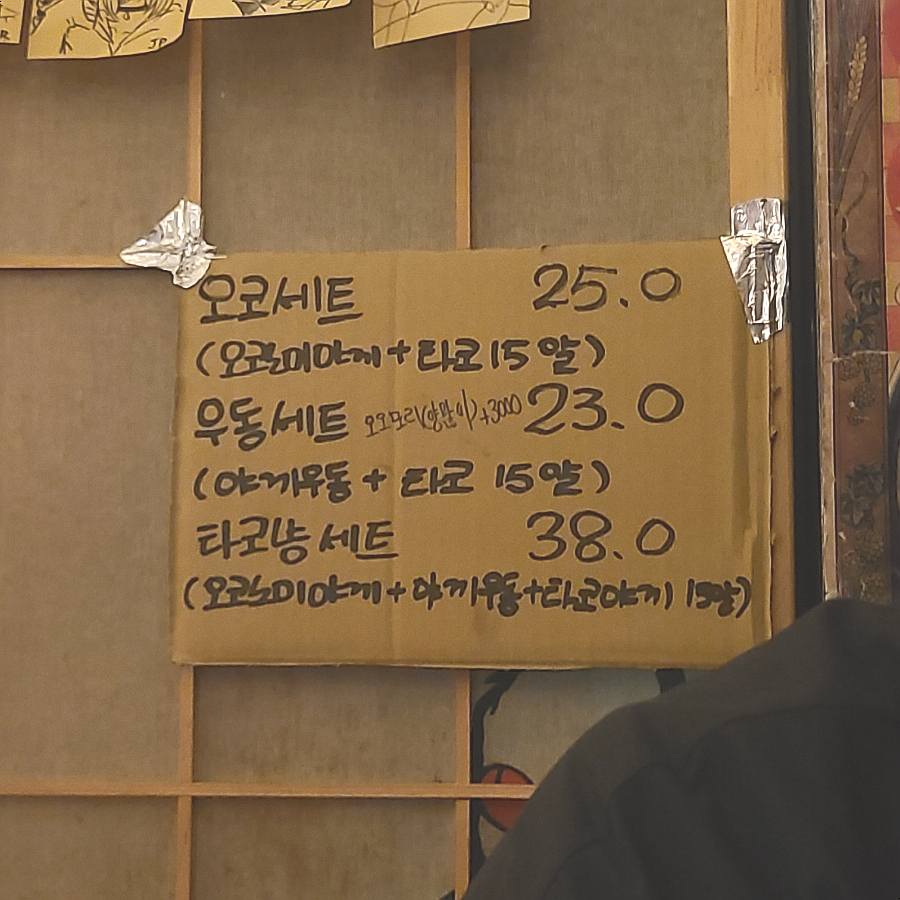 JP
오코세트 25.0
(오코노미야끼+타코 15알)
우동세트 오오모리(양많이)+3000 23.0
(야끼우동 + 타코 15알)
타코냥 세트 38.0
(오코노미야끼+야끼우동+타코야끼 15알)